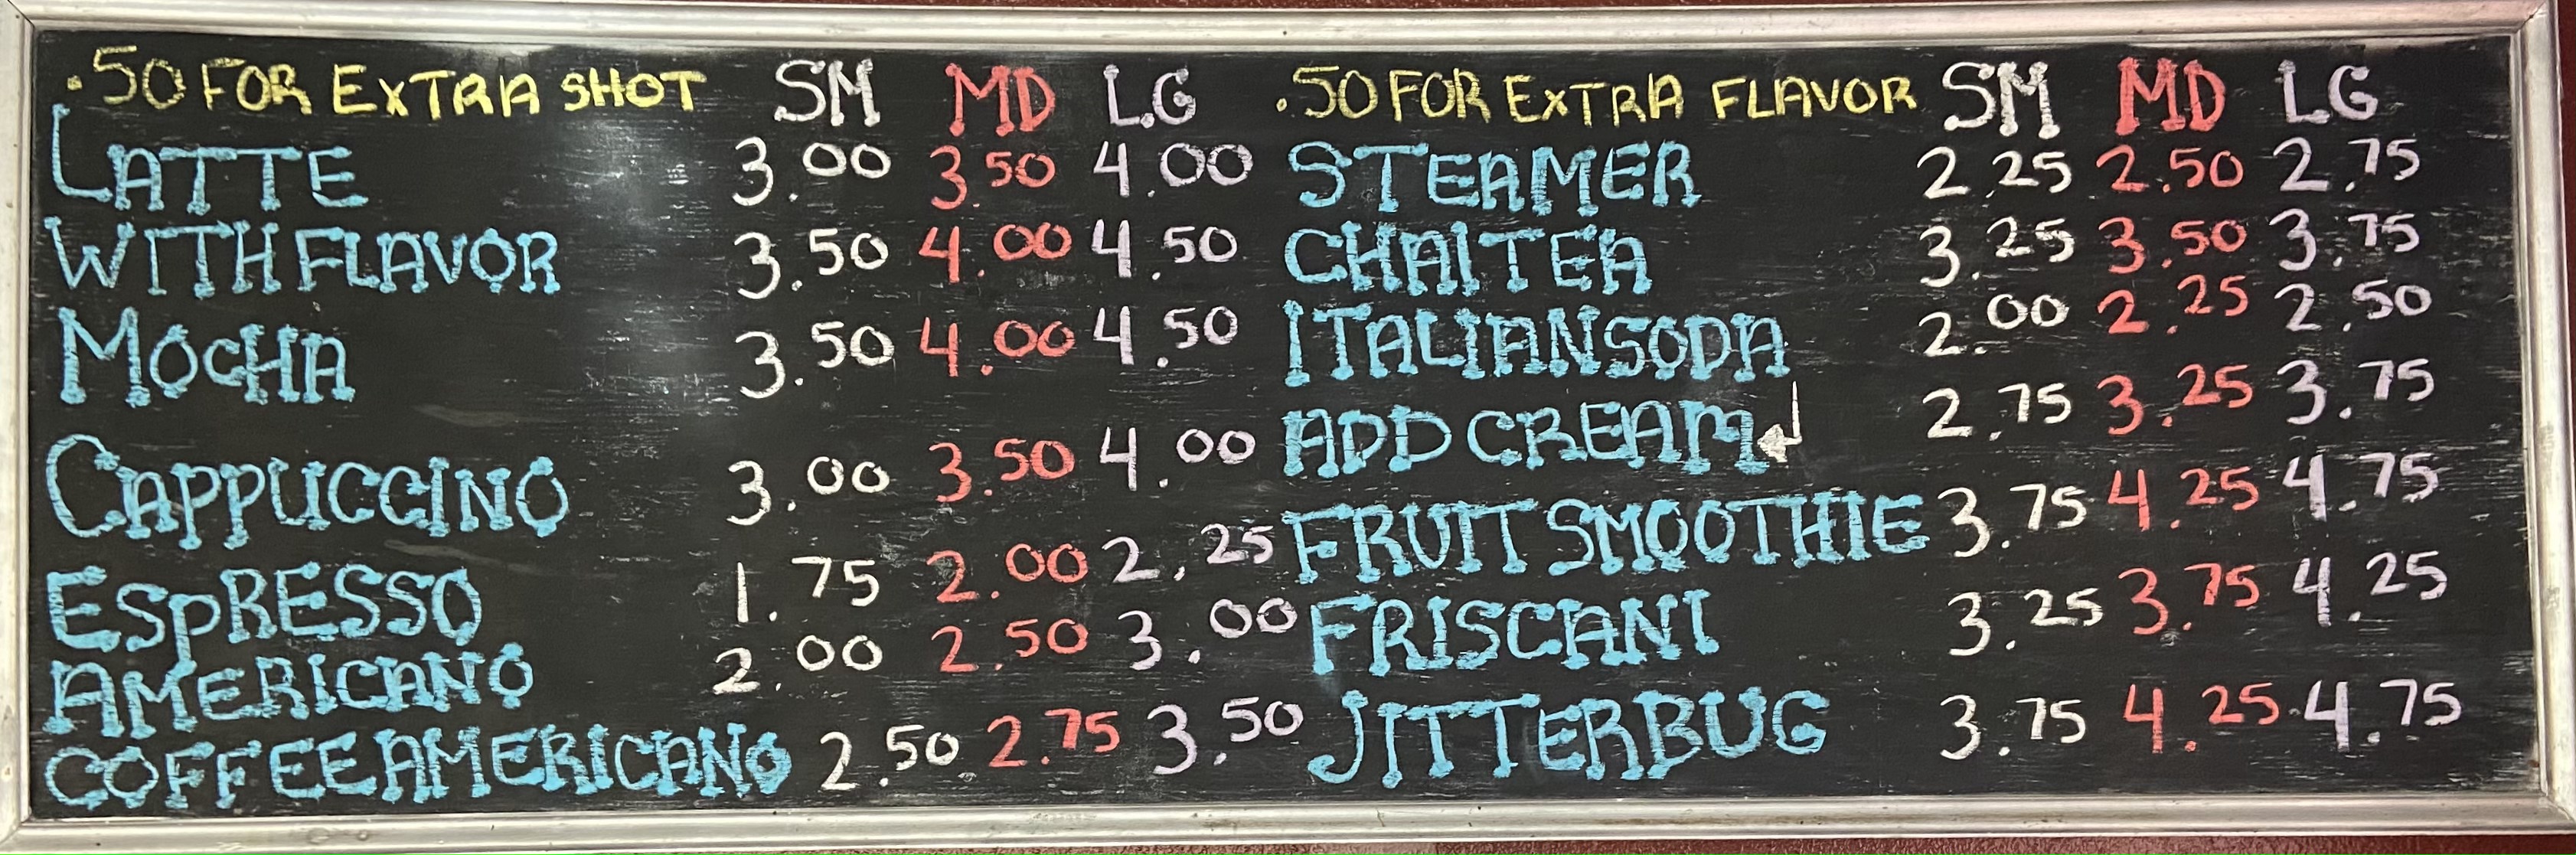 .50 FOR EXTRA SHOT SM MD LG
LATTE 3.00 3.50 4.00
WITH FLAVOR 3.50 4.00 4.50
MOCHA 3.50 4.00 4.50
CAPPUCCINO 3.00 3.50 4.00
ESPRESSO 1.75 2.00 2.25
AMERICANO 2.00 2.50 3.00
COFFEE AMERICANO 2.50 2.75 3.50
.50 FOR EXTRA FLAVOR SM MD LG
STEAMER 2.25 2.50 2.75
CHAI TEA 3.25 3.50 3.75
ITALIAN SODA 2.00 2.25 2.50
ADD CREAM 2.75 3.25 3.75
FRUIT SMOOTHIE 3.75 4.25 4.75
FRISCANI 3.25 3.75 4.25
JITTERBUG 3.75 4.25 4.75